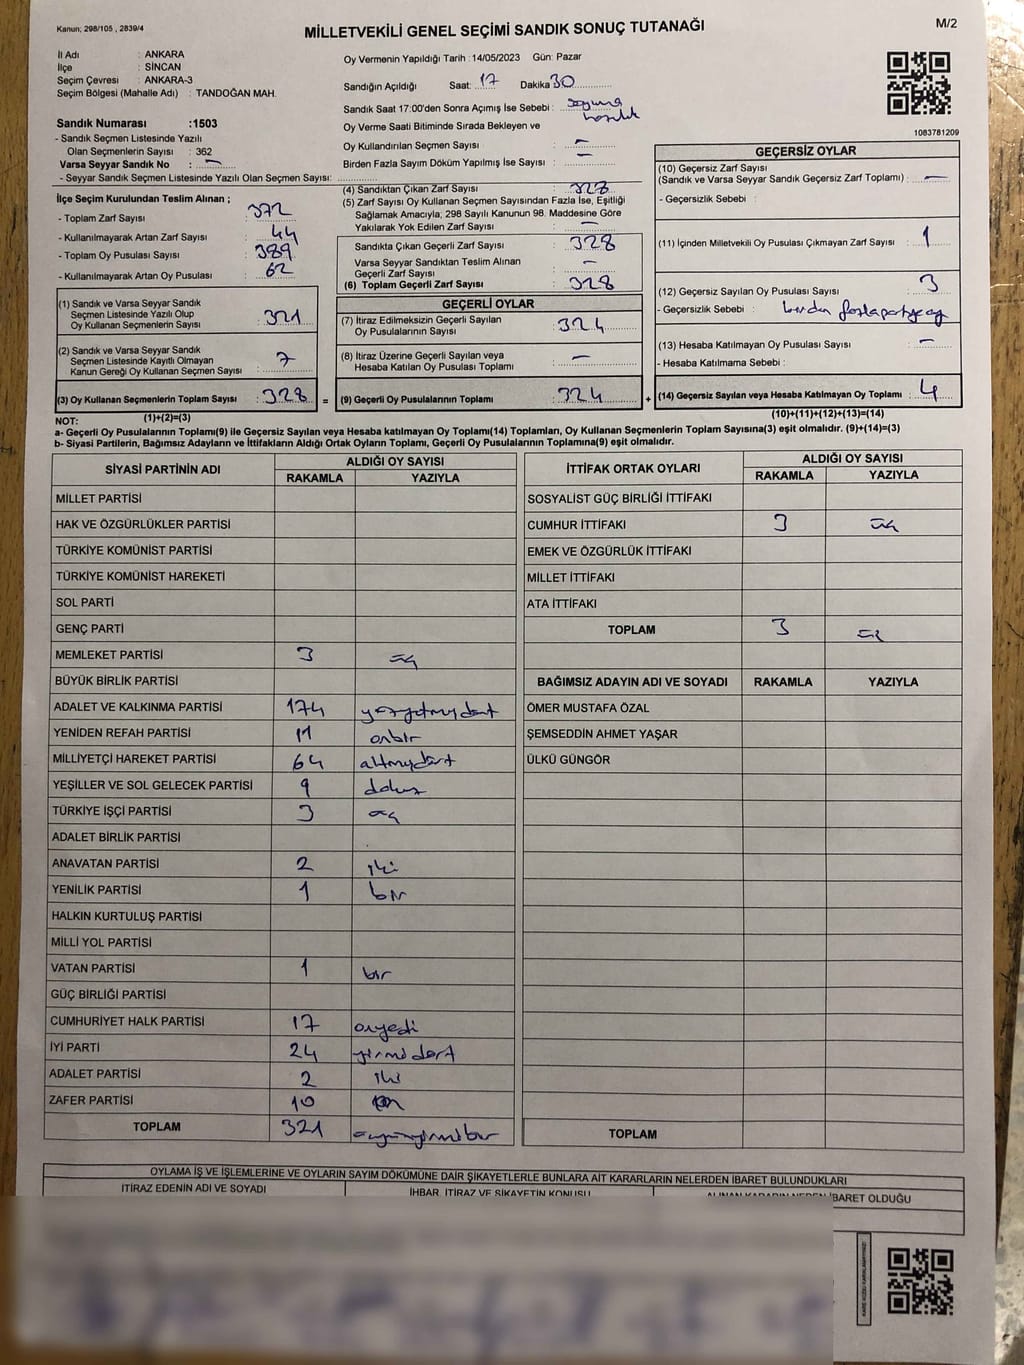 Kanun: 298/105 , 2839/4
MİLLETVEKİLİ GENEL SEÇİMİ SANDIK SONUÇ TUTANAĞI
M/2
İl Adı : ANKARA
İlçe : SİNCAN
Seçim Çevresi : ANKARA-3
Seçim Bölgesi (Mahalle Adı) : TANDOĞAN MAH.
Sandık Numarası :1503
- Sandık Seçmen Listesinde Yazılı
Olan Seçmenlerin Sayısı : 362
Varsa Seyyar Sandık No : –
- Seyyar Sandık Seçmen Listesinde Yazılı Olan Seçmen Sayısı:
Oy Vermenin Yapıldığı Tarih :14/05/2023 Gün: Pazar
Sandığın Açıldığı Saat: 17 Dakika 30
Sandık Saat 17:00'den Sonra Açımış İse Sebebi : sayıma
hazırlık
Oy Verme Saati Bitiminde Sırada Bekleyen ve
Oy Kullandırılan Seçmen Sayısı : –
Birden Fazla Sayım Döküm Yapılmış İse Sayısı : –
1083781209
İlçe Seçim Kurulundan Teslim Alınan ;
- Toplam Zarf Sayısı : 372
- Kullanılmayarak Artan Zarf Sayısı : 44
- Toplam Oy Pusulası Sayısı : 389
- Kullanılmayarak Artan Oy Pusulası : 62
(1) Sandık ve Varsa Seyyar Sandık
Seçmen Listesinde Yazılı Olup
Oy Kullanan Seçmenlerin Sayısı : 321
(2) Sandık ve Varsa Seyyar Sandık
Seçmen Listesinde Kayıtlı Olmayan
Kanun Gereği Oy Kullanan Seçmen Sayısı : 7
(3) Oy Kullanan Seçmenlerin Toplam Sayısı : 328 =
(1)+(2)=(3)
(4) Sandıktan Çıkan Zarf Sayısı : 328
(5) Zarf Sayısı Oy Kullanan Seçmen Sayısından Fazla İse, Eşitliği
Sağlamak Amacıyla; 298 Sayılı Kanunun 98. Maddesine Göre
Yakılarak Yok Edilen Zarf Sayısı : –
Sandıkta Çıkan Geçerli Zarf Sayısı : 328
Varsa Seyyar Sandıktan Teslim Alınan
Geçerli Zarf Sayısı : –
(6) Toplam Geçerli Zarf Sayısı : 328
GEÇERLİ OYLAR
(7) İtiraz Edilmeksizin Geçerli Sayılan
Oy Pusulalarının Sayısı : 324
(8) İtiraz Üzerine Geçerli Sayılan veya
Hesaba Katılan Oy Pusulası Toplamı : –
(9) Geçerli Oy Pusulalarının Toplamı : 324 +
GEÇERSİZ OYLAR
(10) Geçersiz Zarf Sayısı
(Sandık ve Varsa Seyyar Sandık Geçersiz Zarf Toplamı) : –
- Geçersizlik Sebebi :
(11) İçinden Milletvekili Oy Pusulası Çıkmayan Zarf Sayısı : 1
(12) Geçersiz Sayılan Oy Pusulası Sayısı : 3
- Geçersizlik Sebebi : birden fazla partiye oy
(13) Hesaba Katılmayan Oy Pusulası Sayısı : –
- Hesaba Katılmama Sebebi :
(14) Geçersiz Sayılan veya Hesaba Katılmayan Oy Toplamı : 4
(10)+(11)+(12)+(13)=(14)
NOT:
a- Geçerli Oy Pusulalarının Toplamı(9) ile Geçersiz Sayılan veya Hesaba katılmayan Oy Toplamı(14) Toplamları, Oy Kullanan Seçmenlerin Toplam Sayısına(3) eşit olmalıdır. (9)+(14)=(3)
b- Siyasi Partilerin, Bağımsız Adayların ve İttifakların Aldığı Ortak Oyların Toplamı, Geçerli Oy Pusulalarının Toplamına(9) eşit olmalıdır.
SİYASİ PARTİNİN ADI
ALDIĞI OY SAYISI
RAKAMLA YAZIYLA
MİLLET PARTİSİ
HAK VE ÖZGÜRLÜKLER PARTİSİ
TÜRKİYE KOMÜNİST PARTİSİ
TÜRKİYE KOMÜNİST HAREKETİ
SOL PARTİ
GENÇ PARTİ
MEMLEKET PARTİSİ 3 üç
BÜYÜK BİRLİK PARTİSİ
ADALET VE KALKINMA PARTİSİ 174 yüzyetmişdört
YENİDEN REFAH PARTİSİ 11 onbir
MİLLİYETÇİ HAREKET PARTİSİ 64 altmışdört
YEŞİLLER VE SOL GELECEK PARTİSİ 9 dokuz
TÜRKİYE İŞÇİ PARTİSİ 3 üç
ADALET BİRLİK PARTİSİ
ANAVATAN PARTİSİ 2 iki
YENİLİK PARTİSİ 1 bir
HALKIN KURTULUŞ PARTİSİ
MİLLİ YOL PARTİSİ
VATAN PARTİSİ 1 bir
GÜÇ BİRLİĞİ PARTİSİ
CUMHURİYET HALK PARTİSİ 17 onyedi
İYİ PARTİ 24 yirmidört
ADALET PARTİSİ 2 iki
ZAFER PARTİSİ 10 on
TOPLAM 321 üçyüzyirmibir
İTTİFAK ORTAK OYLARI
ALDIĞI OY SAYISI
RAKAMLA YAZIYLA
SOSYALİST GÜÇ BİRLİĞİ İTTİFAKI
CUMHUR İTTİFAKI 3 üç
EMEK VE ÖZGÜRLÜK İTTİFAKI
MİLLET İTTİFAKI
ATA İTTİFAKI
TOPLAM 3 üç
BAĞIMSIZ ADAYIN ADI VE SOYADI RAKAMLA YAZIYLA
ÖMER MUSTAFA ÖZAL
ŞEMSEDDİN AHMET YAŞAR
ÜLKÜ GÜNGÖR
TOPLAM
OYLAMA İŞ VE İŞLEMLERİNE VE OYLARIN SAYIM DÖKÜMÜNE DAİR ŞİKAYETLERLE BUNLARA AİT KARARLARIN NELERDEN İBARET BULUNDUKLARI
İTİRAZ EDENİN ADI VE SOYADI
İHBAR, İTİRAZ VE ŞİKAYETİN KONUSU
ALINAN KARARIN NEDEN İBARET OLDUĞU